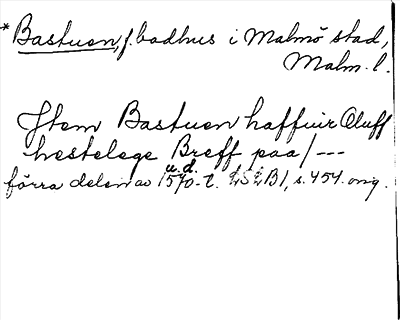 *Bastuen, f. badhus i Malmö stad,
Malm. l.
Jtem Bastuen haffuir Oluff
hestelege Breff paa / ---
u. d.
förra delen av 1570-t. LSLB1, s. 454. orig.